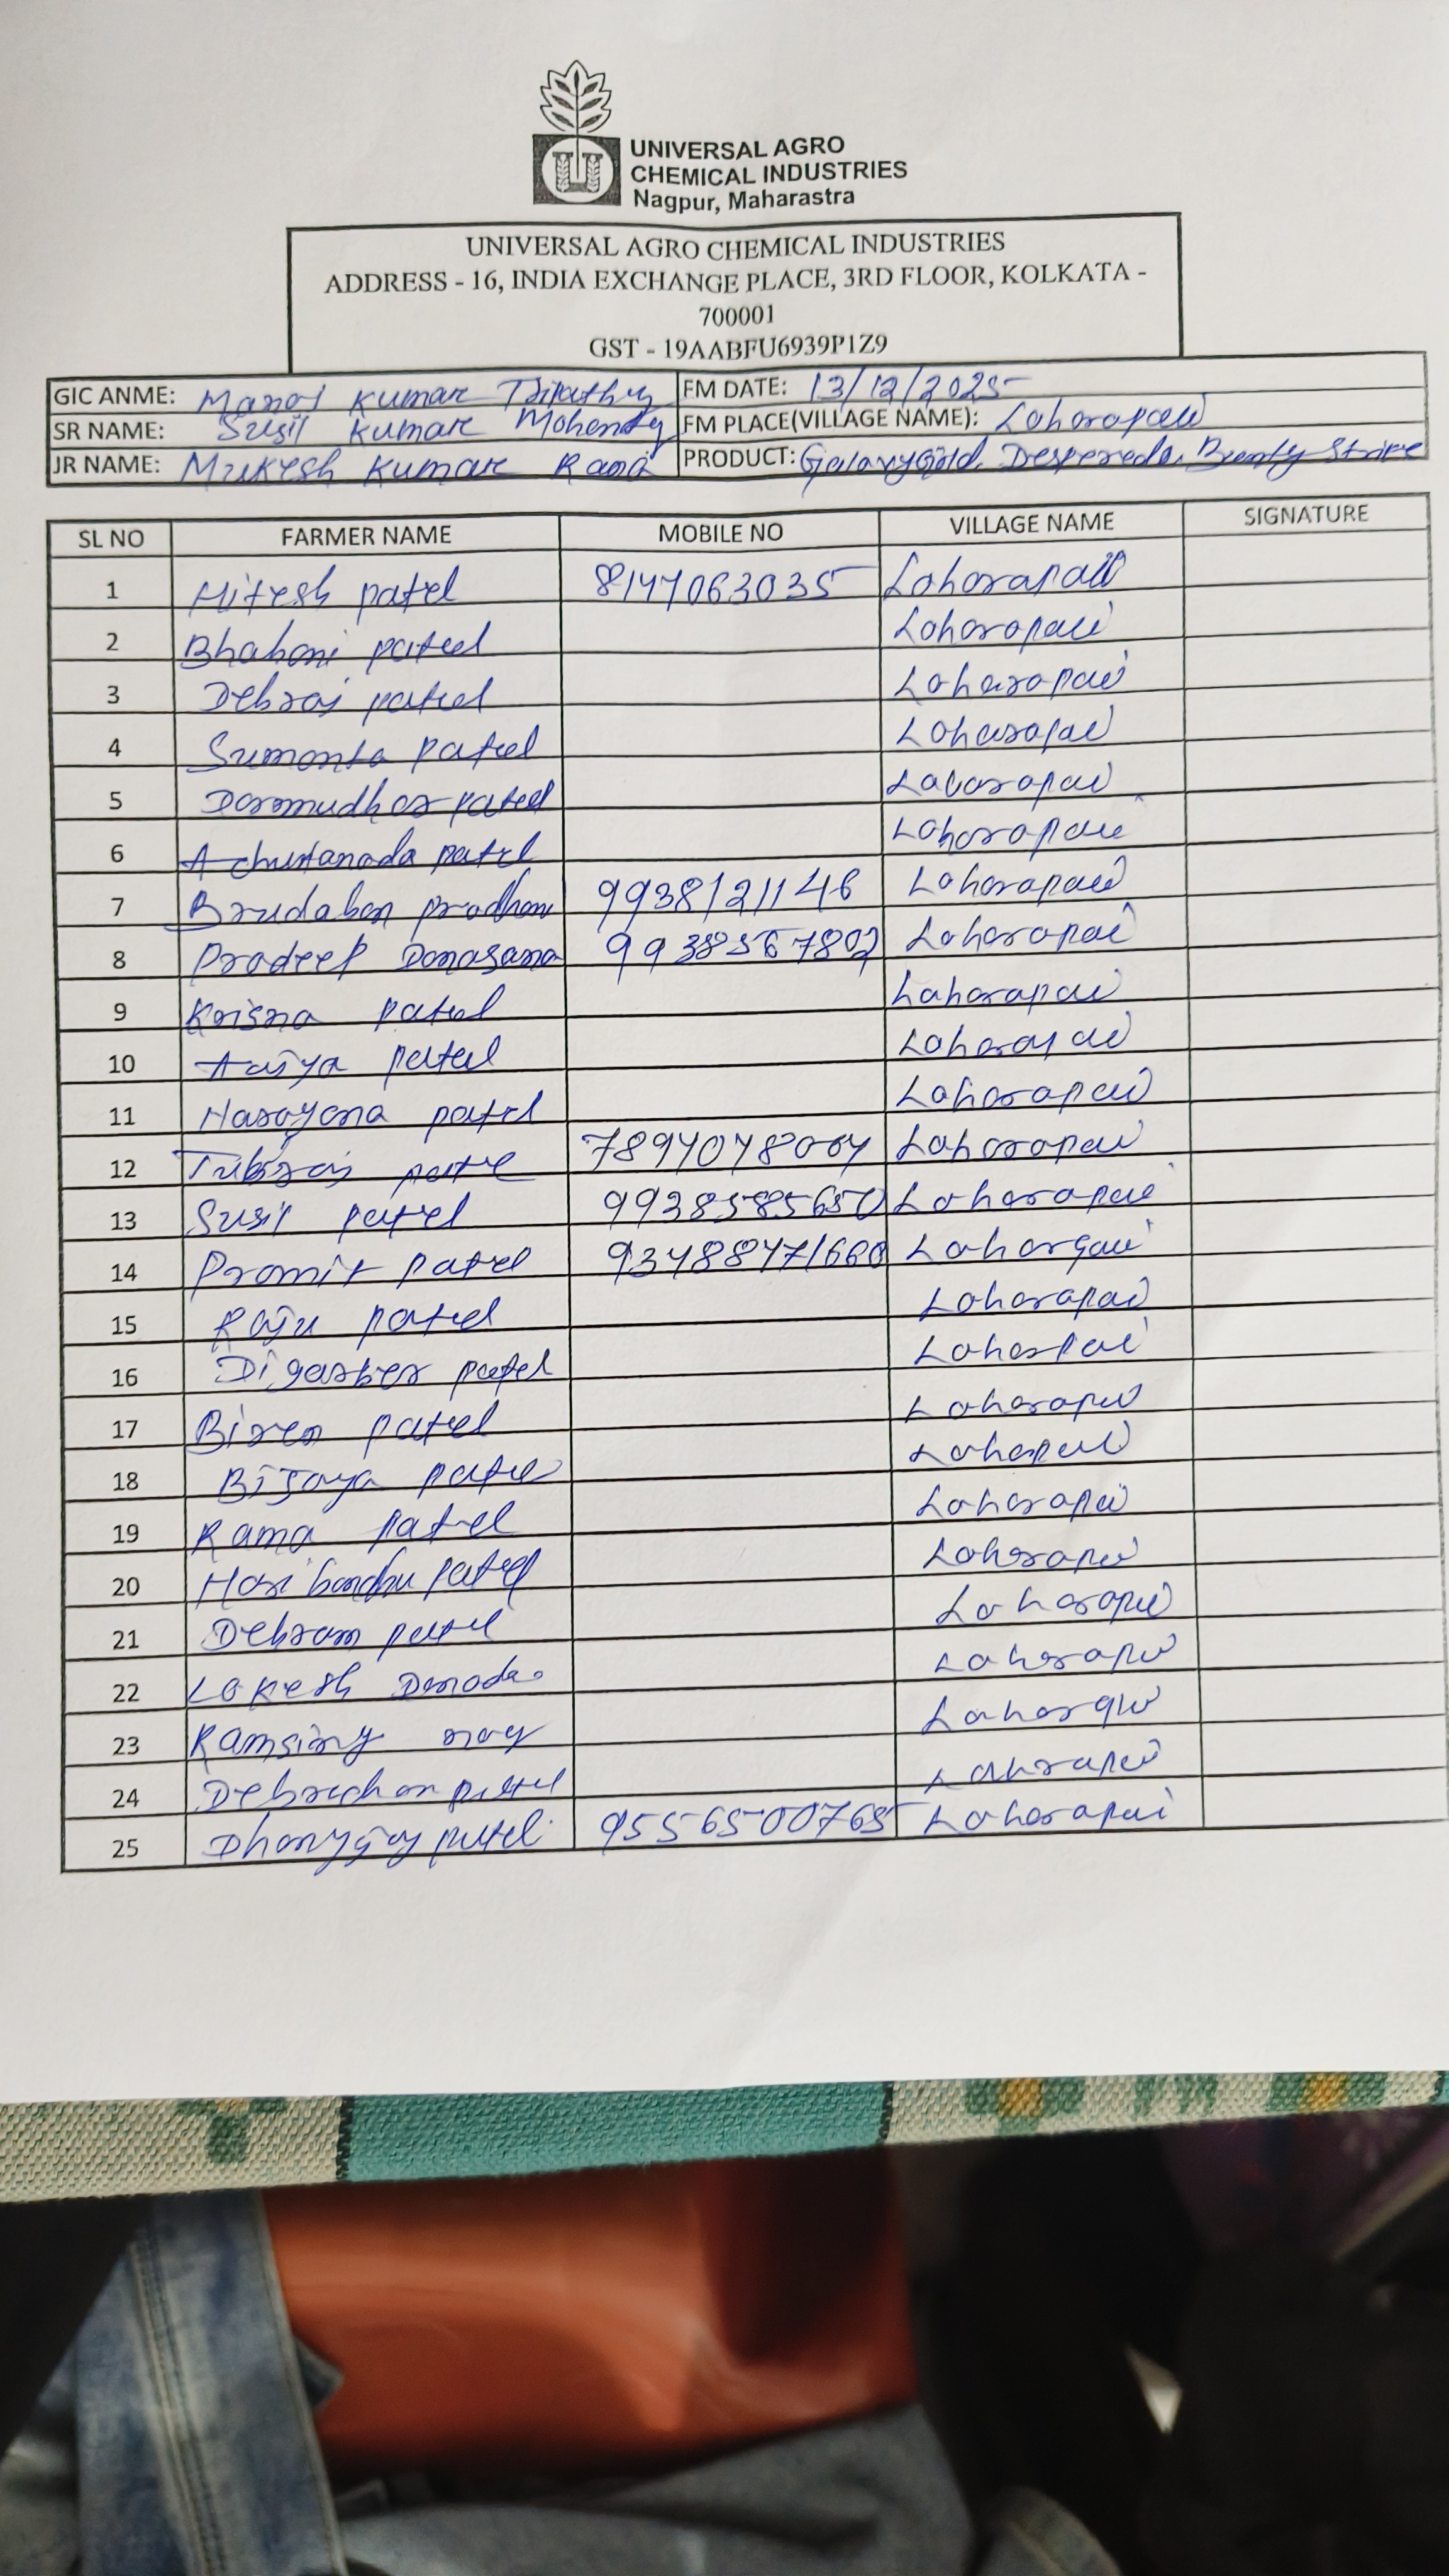 UNIVERSAL AGRO
CHEMICAL INDUSTRIES
Nagpur, Maharastra
UNIVERSAL AGRO CHEMICAL INDUSTRIES
ADDRESS - 16, INDIA EXCHANGE PLACE, 3RD FLOOR, KOLKATA -
700001
GST - 19AABFU6939P1Z9
GIC ANME: Manoj Kumar Tripathy FM DATE: 13/12/2025
SR NAME: Susil Kumar Mohenty FM PLACE(VILLAGE NAME): Loharapali
JR NAME: Mukesh Kumar Rana PRODUCT: Galaxy Gold, Desperedo, Bounty Stripe
SL NO FARMER NAME MOBILE NO VILLAGE NAME SIGNATURE
1 Hitesh patel 8147063035 Loharapali
2 Bhaboni patel Loharapali
3 Debraj patel Loharapali
4 Sumonta patel Loharapali
5 patel Loharapali
6 patel Loharapali
7 Brudabon pradhan 9938121146 Loharapali
8 Pradeep 9938567802 Loharapali
9 Krisna patel Loharapali
10 patel Loharapali
11 Narayona patel Loharapali
12 patel 7894048004 Loharapali
13 Susil patel 9938585650 Loharapali
14 Promit patel Loharapali
15 Raju patel Loharapali
16 patel Loharpali
17 Biren patel Loharapali
18 Bijaya patel Loharpali
19 Rama patel Loharapali
20 Hari bandhu patel Loharapali
21 Debram patel Loharapali
22 Lokesh Loharapali
23 Ramsing Loharapali
24 patel Loharapali
25 patel 9556500765 Loharapali